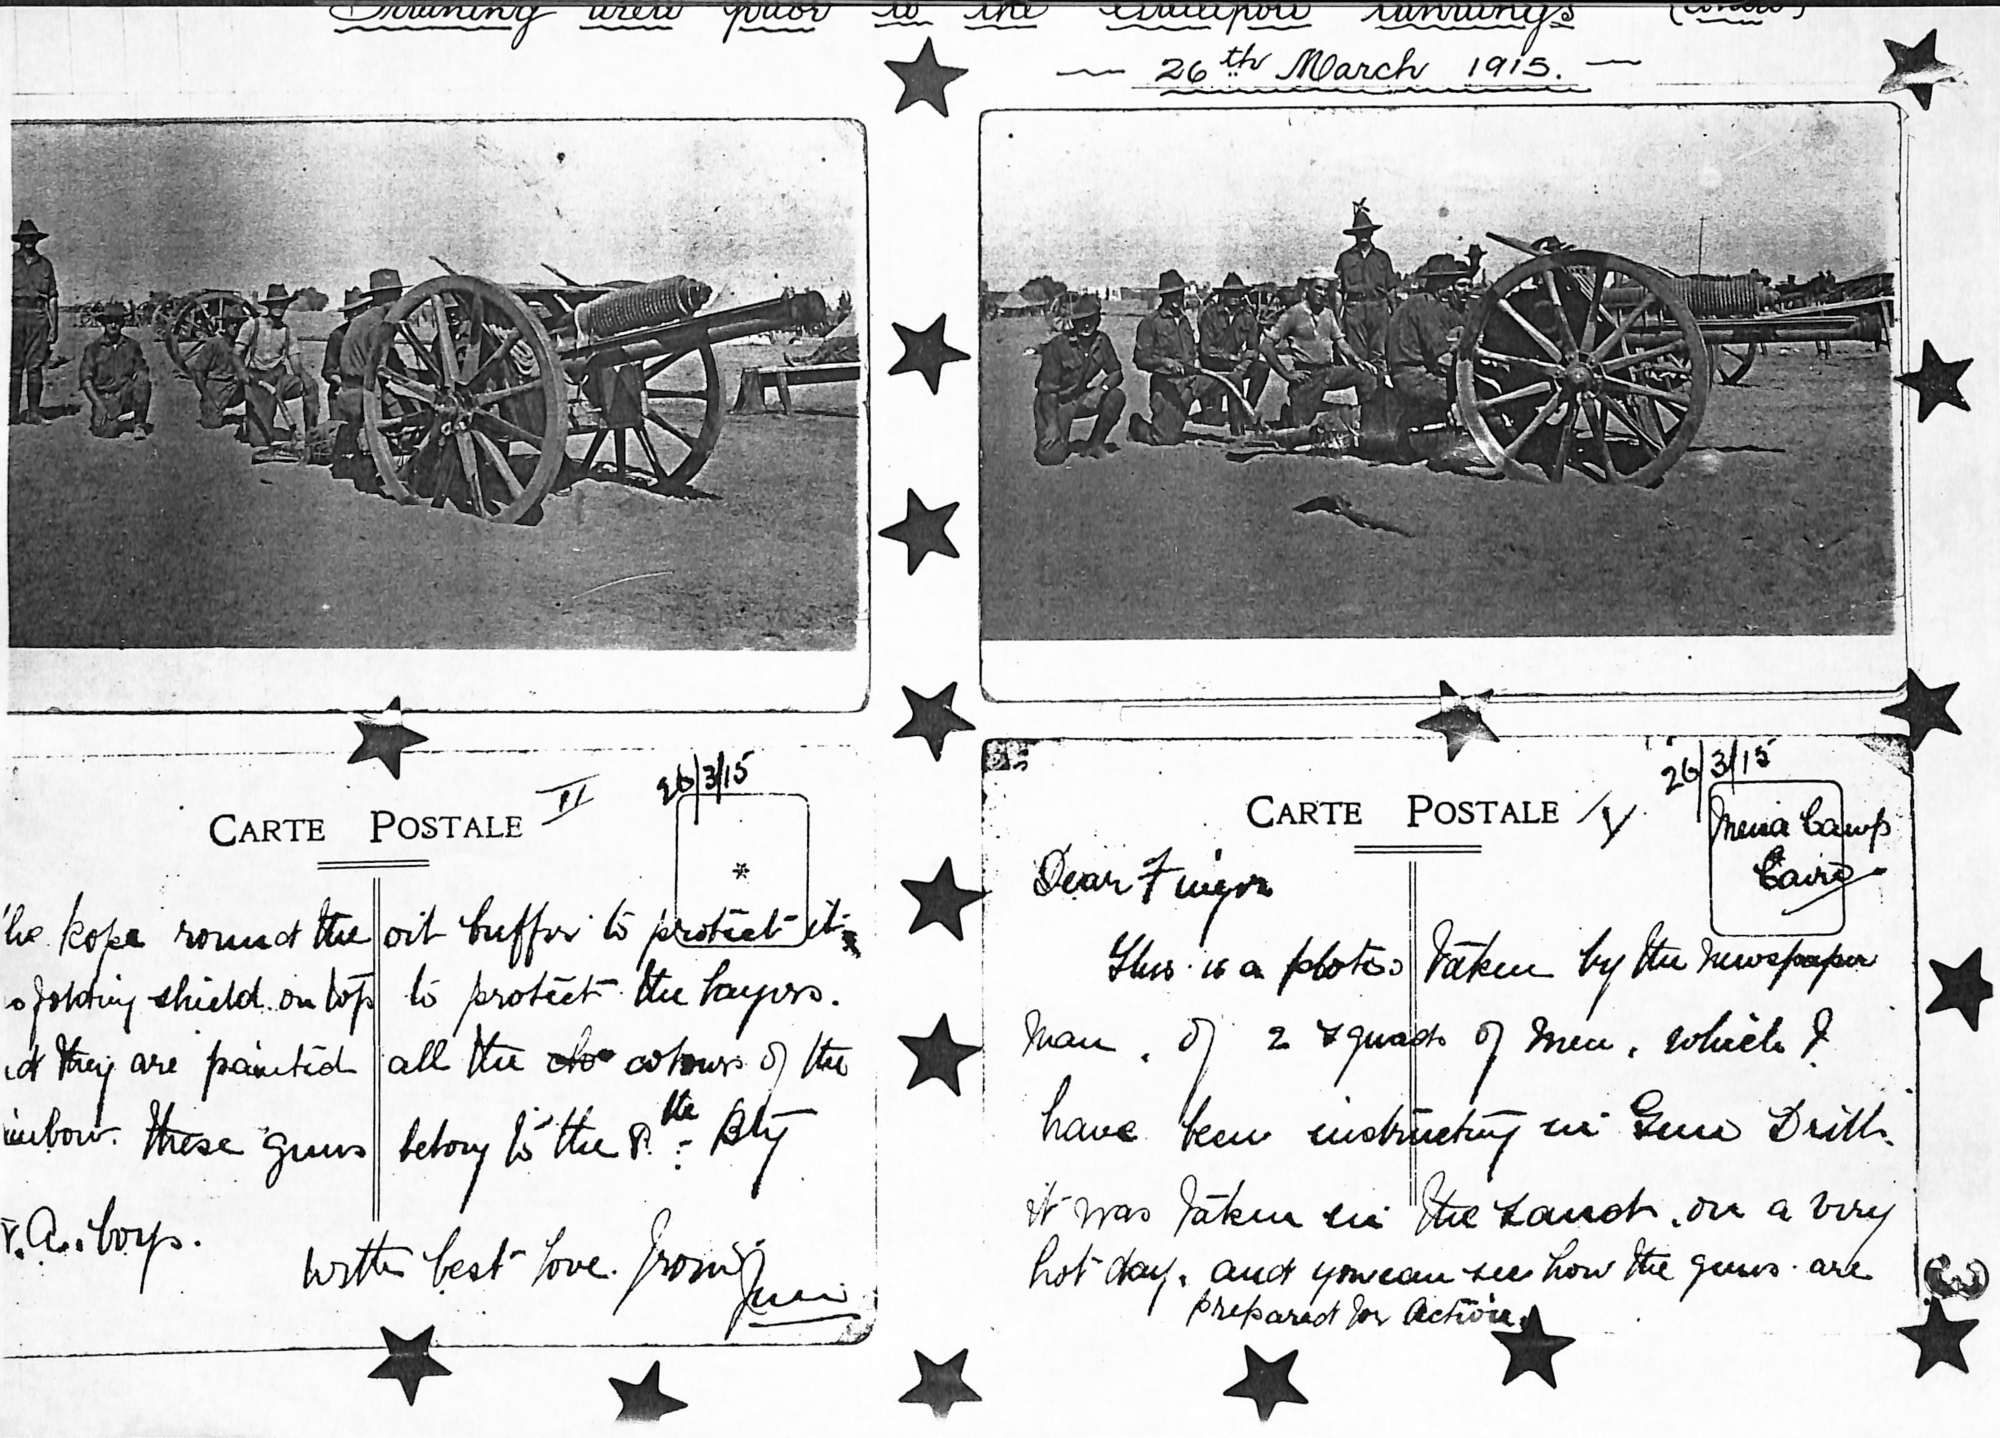 Training area prior to the Gallipoli landings
26th March 1915.
26/3/15
CARTE POSTALE II
he Rope round the oil buffer to protect it
folding shield on top to protect the layers.
they are painted all the colours of the
inbow. These guns belong to the 8th Bty
F.A. boys.
With best love. from Jim
26/3/15
CARTE POSTALE
Mena Camp
Cairo
Dear
This is a photo taken by the newspaper
man, of 2 squads of men, which I
have been instructing in Gun Drill.
it was taken in the sand, on a very
hot day, and you can see how the guns are
prepared for Action.
3